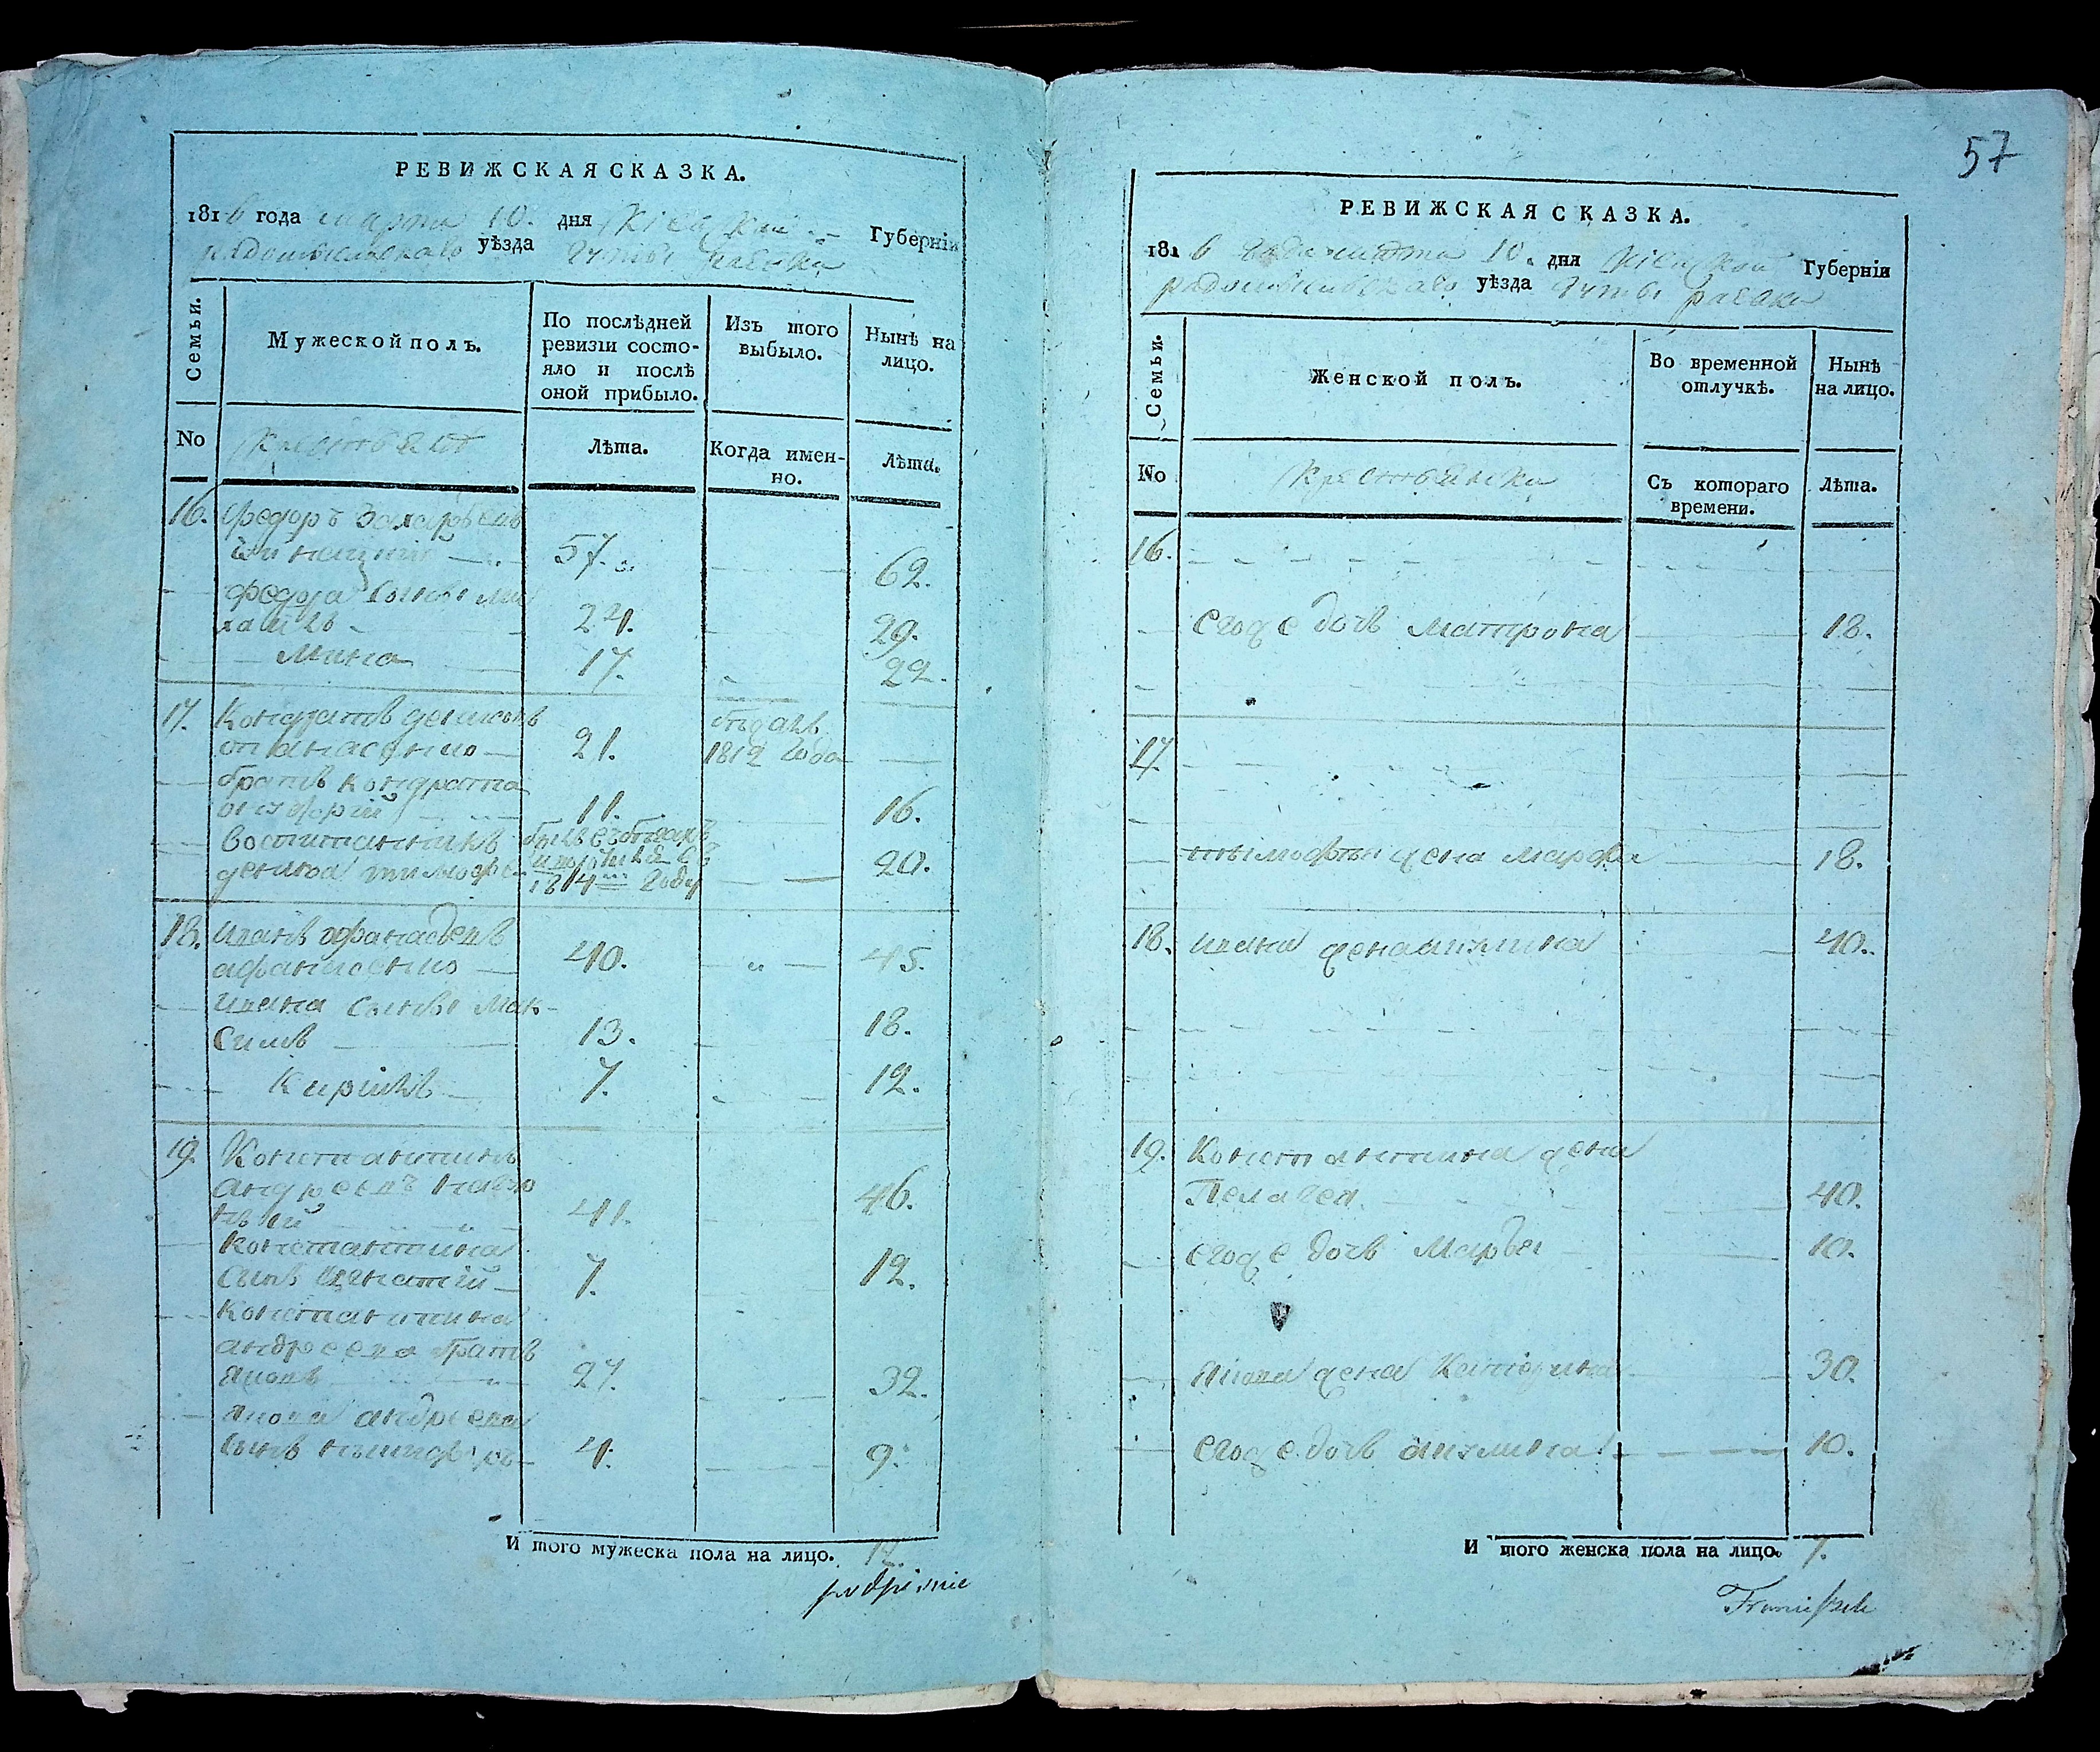 РЕВИЖСКАЯ СКАЗКА.
1816 года марта 10. дня Кіевской Губерніи
радомысльскаго уѣзда гуты
Семьи.
Мужеской полъ.
По послѣдней ревизіи состо-
яло и послѣ
оной прибыло.
Изъ того
выбыло.
Нынѣ на
лицо.
No
Крестьяне
Лѣта.
Когда имен-
но.
Лѣта.
16. Федоръ Захарьевъ
57. 62.
Федора сыновья ми
хаилъ 24. 29.
Мина 17. 22.
17. Кондратъ денисовъ
21. 1812 года
братъ кондрата
онуфрій 11. 16.
воспитанникъ
дениса тимофе 1814 году 20.
18. иванъ афанасьевъ
афанасенко 40. 45.
ивана сыновья Мак-
симъ 13. 18.
Кирилъ 7. 12.
19. Константинъ
андреевъ
41. 46.
Константина
сынъ игнатій 7. 12.
Константина
андреева братъ
яковъ 27. 32.
якова андреева
сынъ 4. 9.
И того мужеска пола на лицо. 12.
podpisnie
57
РЕВИЖСКАЯ СКАЗКА.
1816 года марта 10. дня Кіевской Губерніи
радомысльскаго уѣзда гуты
Семьи.
Женской полъ.
Во временной
отлучкѣ.
Нынѣ
на лицо.
No
Крестьянски
Съ котораго
времени.
Лѣта.
16.
егоже дочь матрона 18.
17.
жена марфа 18.
18. ивана жена акулина 40.
19. Константина жена
Пелагея 40.
егоже дочь Марья 10.
якова жена Катерина 30.
егоже дочь акулина 10.
И того женска пола на лицо. 7.
Franciszek